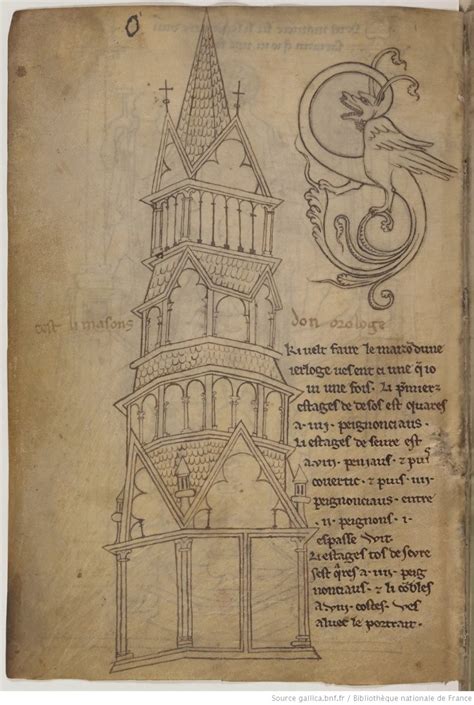 O
cest li masons don orologe
Ki velt faire le maizõ dune
ierloge ves ent ci une q̃ io
vi une fois. Li pͥmiers
estages de desos est quares
a .iiii. peignonciaus.
Li estages de seure est
a .viii. peniaus . & puͥs
covertic . & puis .iiii.
peignonciaus . entre
.ii. peignons . i .
espasse wit.
Li estages tos de seure
sest q̃res a .iiii. peig
nonciaus . & li cõbles
a .viii. costes . ves
aluec le portrait.
Source gallica.bnf.fr / Bibliothèque nationale de France